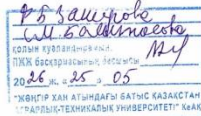 РБ Зашурова
С.М. Балтыгосова
қолын куәландырамын
ПЖЖ басқармасының басшысы
2026 ж. «25» 05
"ЖӘҢГІР ХАН АТЫНДАҒЫ БАТЫС ҚАЗАҚСТАН
АГРАРЛЫҚ-ТЕХНИКАЛЫҚ УНИВЕРСИТЕТІ" КеАҚ